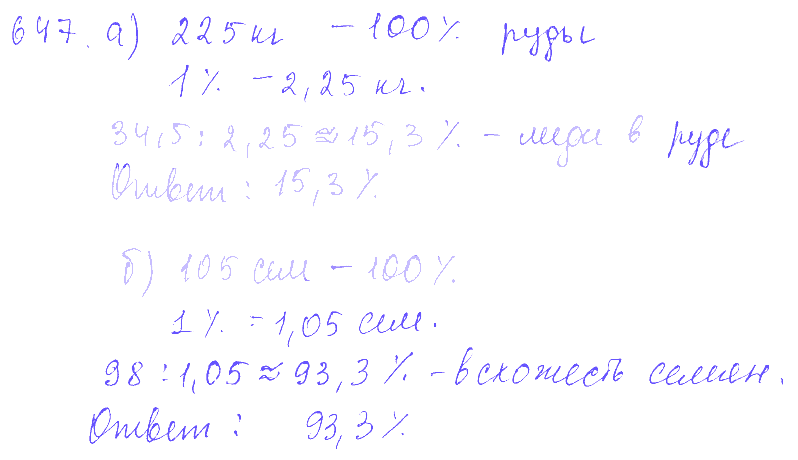 647. а) 225 кг – 100% руды
1% – 2,25 кг.
34,5 : 2,25 ≈ 15,3% – меди в руде
Ответ : 15,3%
б) 105 сем – 100%.
1% = 1,05 сем.
98 : 1,05 ≈ 93,3% – всхожесть семян.
Ответ : 93,3%.